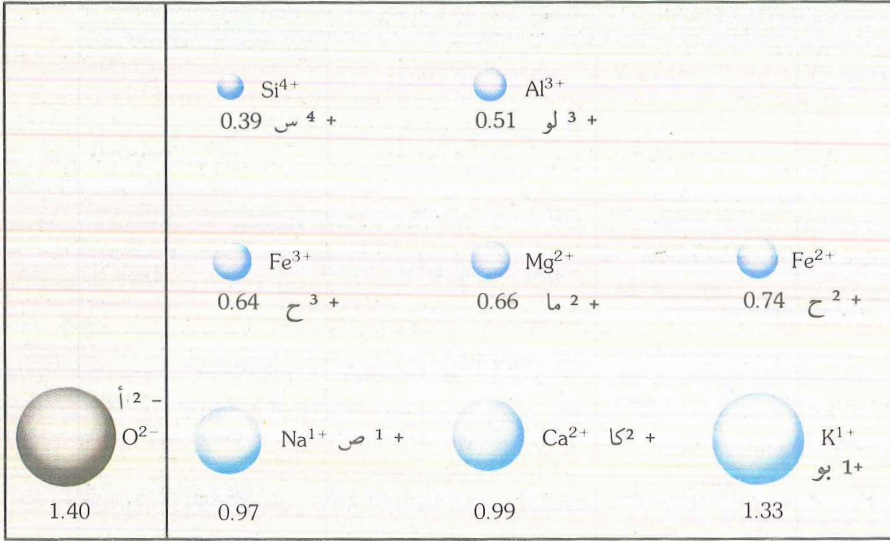 Si⁴⁺
0.39 س ⁴ +
Al³⁺
0.51 لو ³ +
Fe³⁺
0.64 ح ³ +
Mg²⁺
0.66 ما ² +
Fe²⁺
0.74 ح ² +
أ ² −
O²⁻
1.40
Na¹⁺ ص ¹ +
0.97
Ca²⁺ كا ² +
0.99
K¹⁺
بو ¹+
1.33